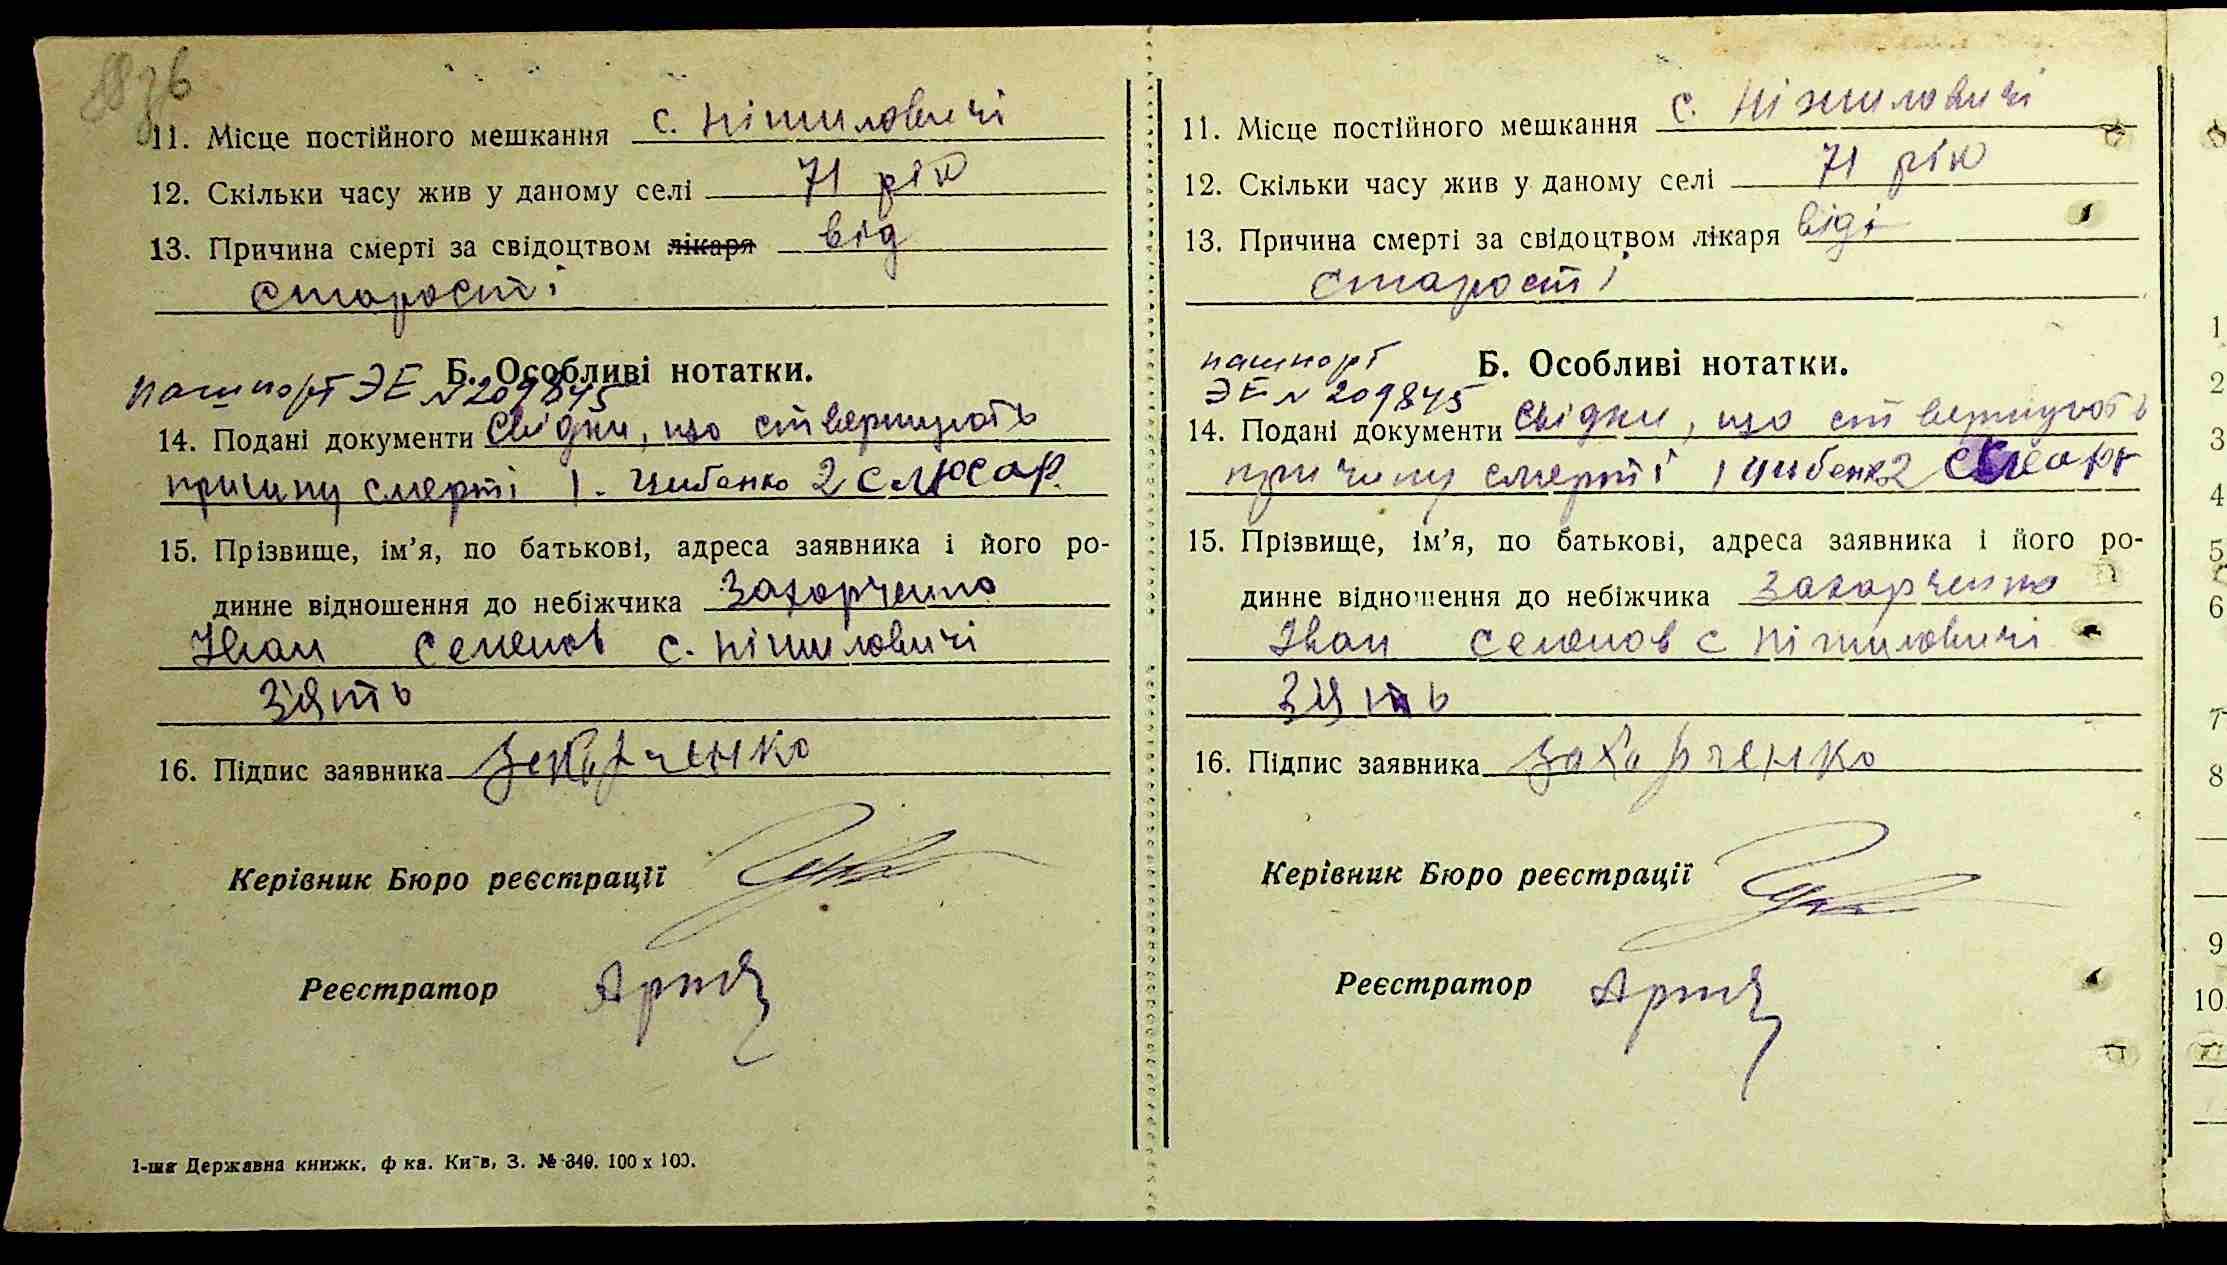 11. Місце постійного мешкання с. Ніжиловичі
12. Скільки часу жив у даному селі 71 рік
13. Причина смерті за свідоцтвом лікаря від
старості
Б. Особливі нотатки.
пашпорт ЭЕ № 209845
14. Подані документи Свідки, що ствержують
причину смерті 1. Цибенко 2 Слюсар
15. Прізвище, ім’я, по батькові, адреса заявника і його ро-
динне відношення до небіжчика Захарченко
Іван Семенов с. Ніжиловичі
зять
16. Підпис заявника Захарченко
Керівник Бюро реєстрації
Реєстратор
1-ша Державна книжк. ф-ка. Київ, З. № 340. 100 x 100.
11. Місце постійного мешкання с. Ніжиловичі
12. Скільки часу жив у даному селі 71 рік
13. Причина смерті за свідоцтвом лікаря від
старості
пашпорт
Б. Особливі нотатки.
ЭЕ № 209845
14. Подані документи Свідки, що ствержують
причину смерті 1 Цибенко 2 Слюсар
15. Прізвище, ім’я, по батькові, адреса заявника і його ро-
динне відношення до небіжчика Захарченко
Іван Семенов с Ніжиловичі
зять
16. Підпис заявника Захарченко
Керівник Бюро реєстрації
Реєстратор
1
2
3
4
5
6
7
8
9
10